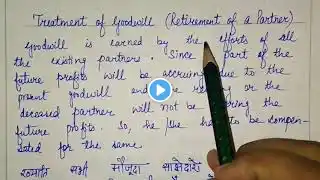 Treatment of Goodwill (Retirement of a Partner)-
Goodwill is earned by the efforts of all
the existing partners. Since part of the
future profits will be accruing due to the
present goodwill and re ring or the
deceased partner will not be ring the
future profits. So, he/she h to be compen-
sated for the same.
ख्याति सभी मौजूदा साझेदारो